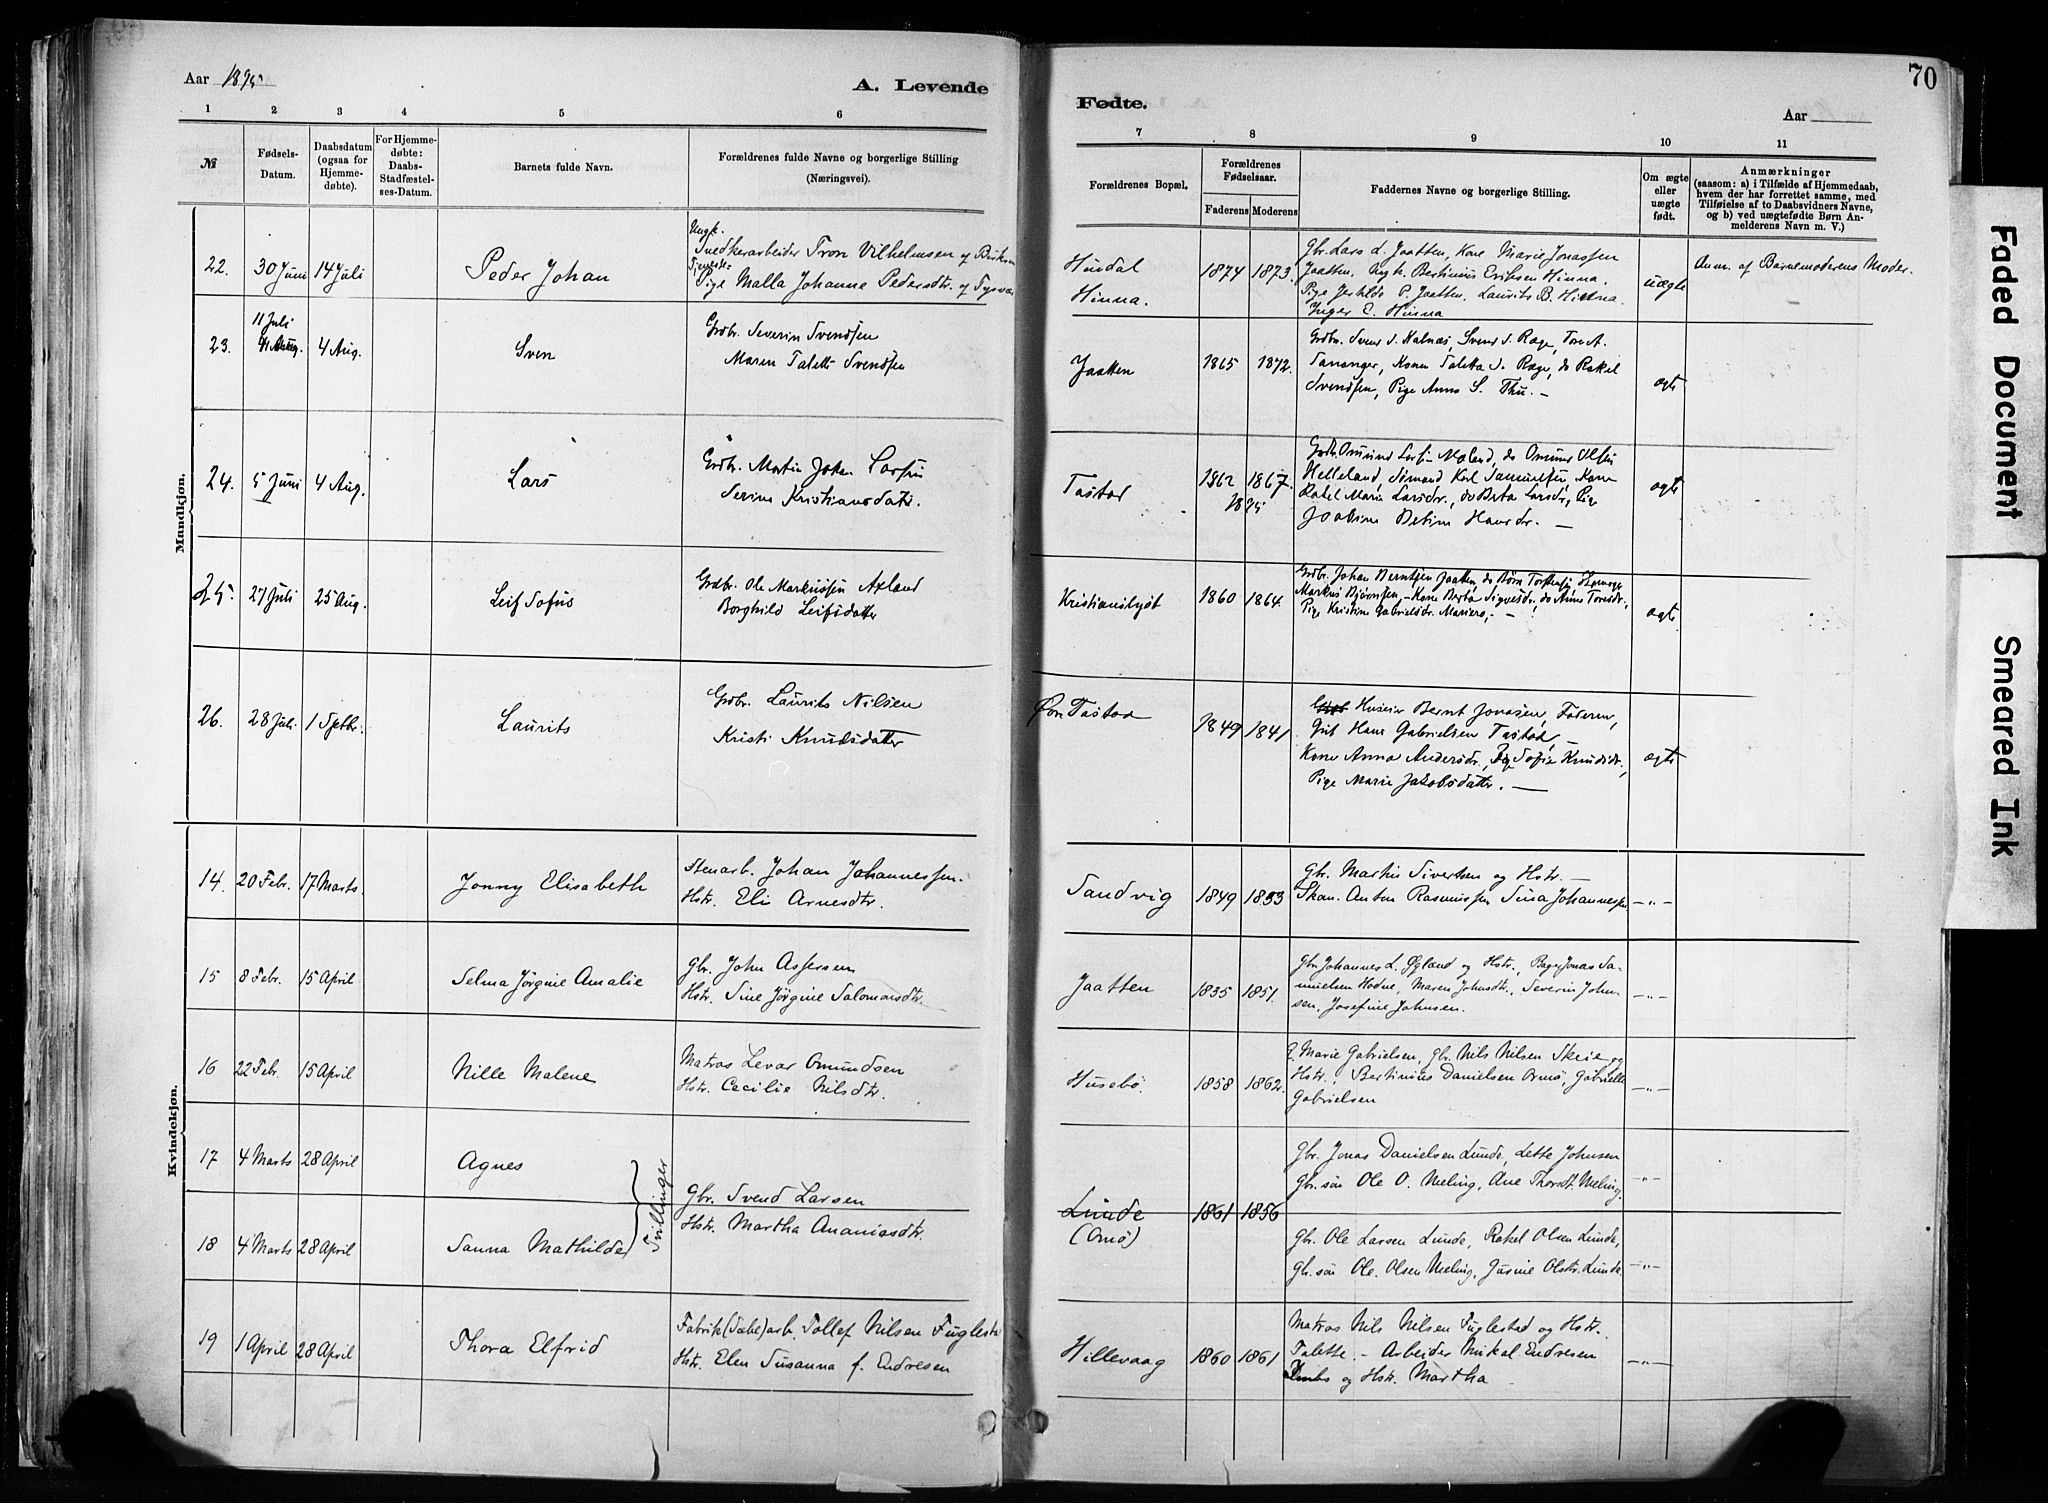 Aar 1895
A. Levende
Fødte.
Aar
70
1 2 3 4 5 6
7 8 9 10 11
№
Fødsels-
Datum.
Daabsdatum
(ogsaa for
Hjemme-
døbte).
For Hjemme-
døbte:
Daabs-
Stadfæstel-
ses-Datum.
Barnets fulde Navn.
Forældrenes fulde Navne og borgerlige Stilling
(Næringsvei).
Forældrenes Bopæl.
Forældrenes
Fødselsaar.
Faderens Moderens
Faddernes Navne og borgerlige Stilling.
Om ægte
eller
uægte
født.
Anmærkninger
(saasom: a) i Tilfælde af Hjemmedaab,
hvem der har forrettet samme, med
Tilføielse af to Daabsvidners Navne,
og b) ved uægtefødte Børn An-
melderens Navn m. V.)
Mandkjøn.
22. 30 Juni 14 Juli
Peder Johan
Ungk.
Snedkerarbeider Tron Vilhelmsen af
Pige Malla Johanne Pedersdtr. af Tysvær
Hindal
Hinna.
1874 1873
Gbr. Lars L. Jaatten, Kone Marie Jonassen
Jaatten, Ungk. Bertinius Eriksen Hinna,
Pige P. Jaatten, Laurits B. Hinna
Inger E. Hinna
uægte
Anm. af Barnemoderens Moder.
23. 11 Juli 4 Aug.
Sven
Grdbr. Severin Svendsen
Maren Talette Svendsen
Jaatten
1865 1872.
Grdbr. Svend S. Kalnæs, Svend S. Ræge, Tore A.
Tananger, Konen Taletta S. Ræge, do Rakel
Svendsen, Pige Anna S. Thu. –
ægte
24. 5 Juni 4 Aug.
Lars
Grdbr. Martin Johan Larsen
Serine Kristiansdatr.
Tastad
1862 1867.
1895
Grdbr. Omund Larsen Maland, do Omund Olsen
Helleland, Sømand Karl Samuelsen, Kone
Rakel Marie Larsdr., do Berta Larsdr, Pige
Joakime Betine Hansdr. –
ægte
25. 27 Juli 25 Aug.
Leif Tofus
Grdbr. Ole Markussen Axland
Borghild Leifsdatter
Kristianslyst
1860 1864.
Grdbr. Johan Berntsen Jaatten do Børn
Markus Bjørnsen, – Kone Berta Sigvesdr, do Anne Toresdr,
Pige Kristine Gabrielsdr. Mariero, –
ægte
26. 28 Juli 1 Septbr.
Laurits
Grdbr. Laurits Nilsen
Kristi Knudsdatter
Øvr. Tastad
1849 1841
Huseier Bernt Jonasen, Faderen,
Gut Hans Gabrielsen Tastad, –
Kone Anna Andersdr., Pige Sofie Knudsdr.,
Pige Marie Jakobsdatter. –
ægte
Kvindekjøn.
14. 20 Febr. 17 Marts.
Jonny Elisabeth
Stenarb. Johan Johannessen.
Hstr. Eli Arnesdtr.
Sandvig
1849 1853
Gbr. Martin Sivertsen og Hstr. –
Skom. Anton Rasmussen Sina Johannessen
– „ –
15 8 Febr. 15 April
Selma Jørgine Amalie
Gbr. John Assersen
Hstr. Sine Jørgine Salomonsdtr.
Jaatten
1835 1851.
Gbr. Johannes L. Øgland og Hstr., Bager Jonas Sa-
muelsen Hodne, Maren Johnsdtr., Severin John-
sen, Josefine Johnsen.
– „ –
16 22 Febr. 15 April
Nille Malene
Matros Levar Omundsen
Hstr. Cecilie Nilsdtr.
Husebø
1858 1862.
E. Marie Gabrielsen, Gbr. Nils Nilsen Skeie og
Hstr., Bertinius Danielsen Ormø, Gabrielle
Gabrielsen
– „ –
17 4 Marts 28 April
Agnes
Tvillinger
Gbr. Svend Larsen
Hstr. Martha Ananiasdtr.
Lunde
(Ormø)
1861 1856
Gbr. Jonas Danielsen Lunde, Lette Johnsen
Gbr. søn Ole O. Meling, Ane Thorsdt. Meling.
– „ –
18 4 Marts 28 April
Sanna Mathilde
Gbr. Ole Larsen Lunde, Rakel Olsen Lunde,
Gbr. søn Ole Olsen Meling, Gurine Olsdtr. Lunde
– „ –
19 1 April 28 April
Thora Elfrid
Fabrik(Sæbe)arb. Tollef Nilsen Fuglestad
Hstr. Elen Susanna f. Endresen
Hillevaag
1860 1861
Matros Nils Nilsen Fuglestad og Hstr.
Talette. – Arbeider Mikal Endresen
og Hstr. Martha –
– „ –
Faded Document
Smeared Ink